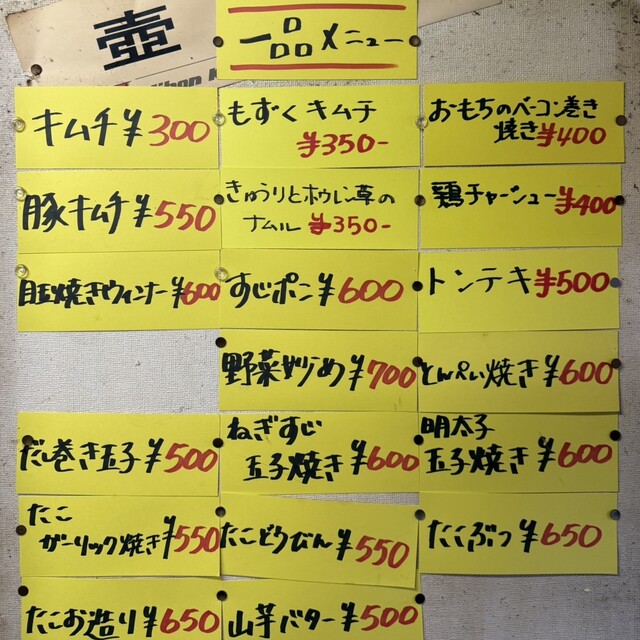 壺
一品メニュー
キムチ ¥300
もずくキムチ
¥350-
おもちのベーコン巻き
焼き¥400
豚キムチ ¥550
きゅうりとホウレン草の
ナムル ¥350-
鶏チャーシュー¥400
目玉焼きウィンナー¥600
すじポン¥600
トンテキ¥500
野菜炒め¥700
とんぺい焼き¥600
だし巻き玉子¥500
ねぎすじ
玉子焼き¥600
明太子
玉子焼き¥600
たこ
ガーリック焼き¥550
たこどうびん¥550
たこぶつ¥650
たこお造り¥650
山芋バター¥500